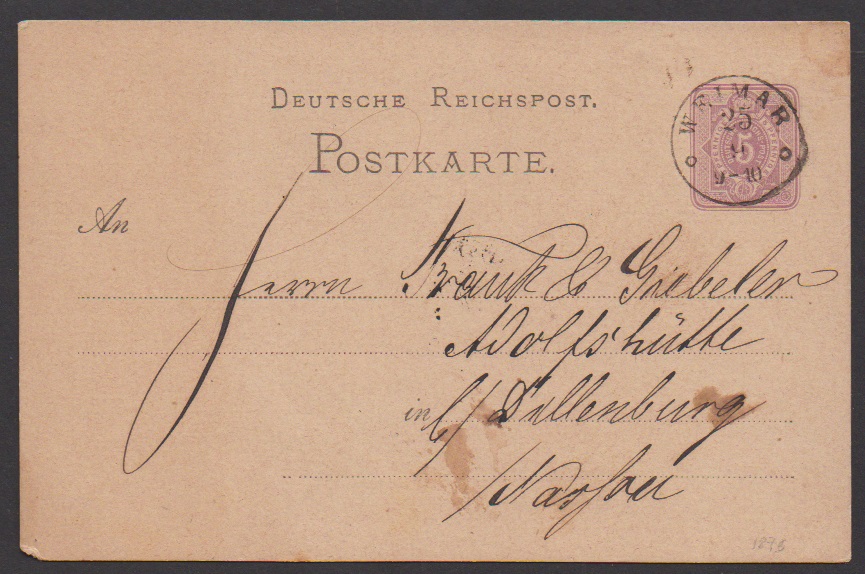 DEUTSCHE REICHSPOST.
POSTKARTE.
WEIMAR
25
9
9-10
5
An
Herrn Frank & Giebeler
Adolfshütte
in b/ Dillenburg
/Nassau